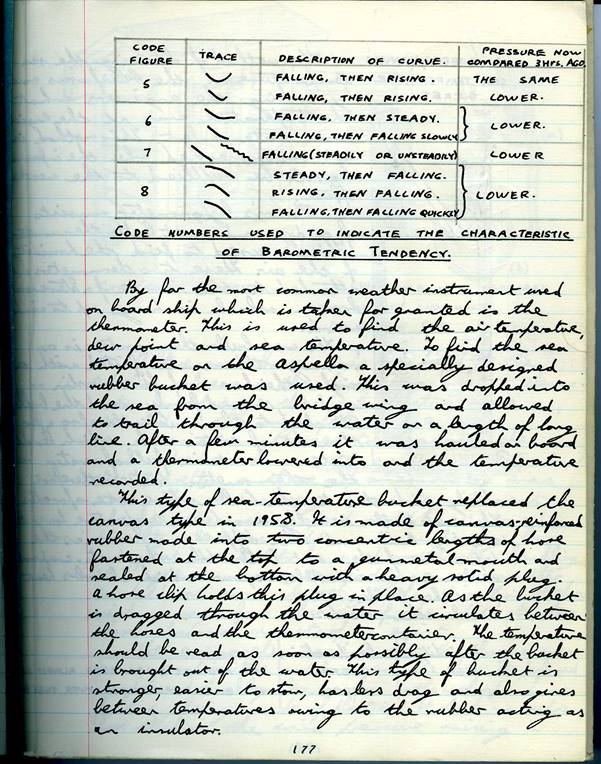 CODE FIGURE TRACE DESCRIPTION OF CURVE. PRESSURE NOW COMPARED 3 Hrs. AGO.
5 FALLING, THEN RISING. THE SAME
FALLING, THEN RISING. LOWER.
6 FALLING, THEN STEADY. LOWER.
FALLING, THEN FALLING SLOWLY
7 FALLING (STEADILY OR UNSTEADILY) LOWER
STEADY, THEN FALLING.
8 RISING, THEN FALLING. LOWER.
FALLING, THEN FALLING QUICKLY
CODE NUMBERS USED TO INDICATE THE CHARACTERISTIC
OF BAROMETRIC TENDENCY.
By far the most common weather instrument used
on board ship which is taken for granted is the
thermometer. This is used to find the air temperature,
dew point and sea temperature. To find the sea
temperature on the Aspella a specially designed
rubber bucket was used. This was dropped into
the sea from the bridge wing and allowed
to trail through the water on a length of long
line. After a few minutes it was hauled on board
and a thermometer lowered into and the temperature
recorded.
This type of sea-temperature bucket replaced the
canvas type in 1958. It is made of canvas-reinforced
rubber made into two concentric lengths of hose
fastened at the top to a gunmetal mouth and
sealed at the bottom with a heavy solid plug.
A hose clip holds this plug in place. As the bucket
is dragged through the water it circulates between
the hoses and the thermometer container. The temperature
should be read as soon as possibly after the bucket
is brought out of the water. This type of bucket is
stronger, easier to stow, has less drag and also gives
between temperatures owing to the rubber acting as
an insulator.
177